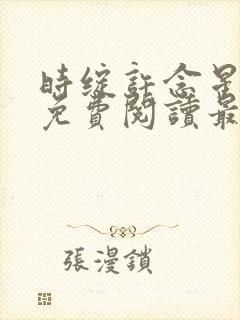 时绽許念星
免費閱讀最
張漫鎖